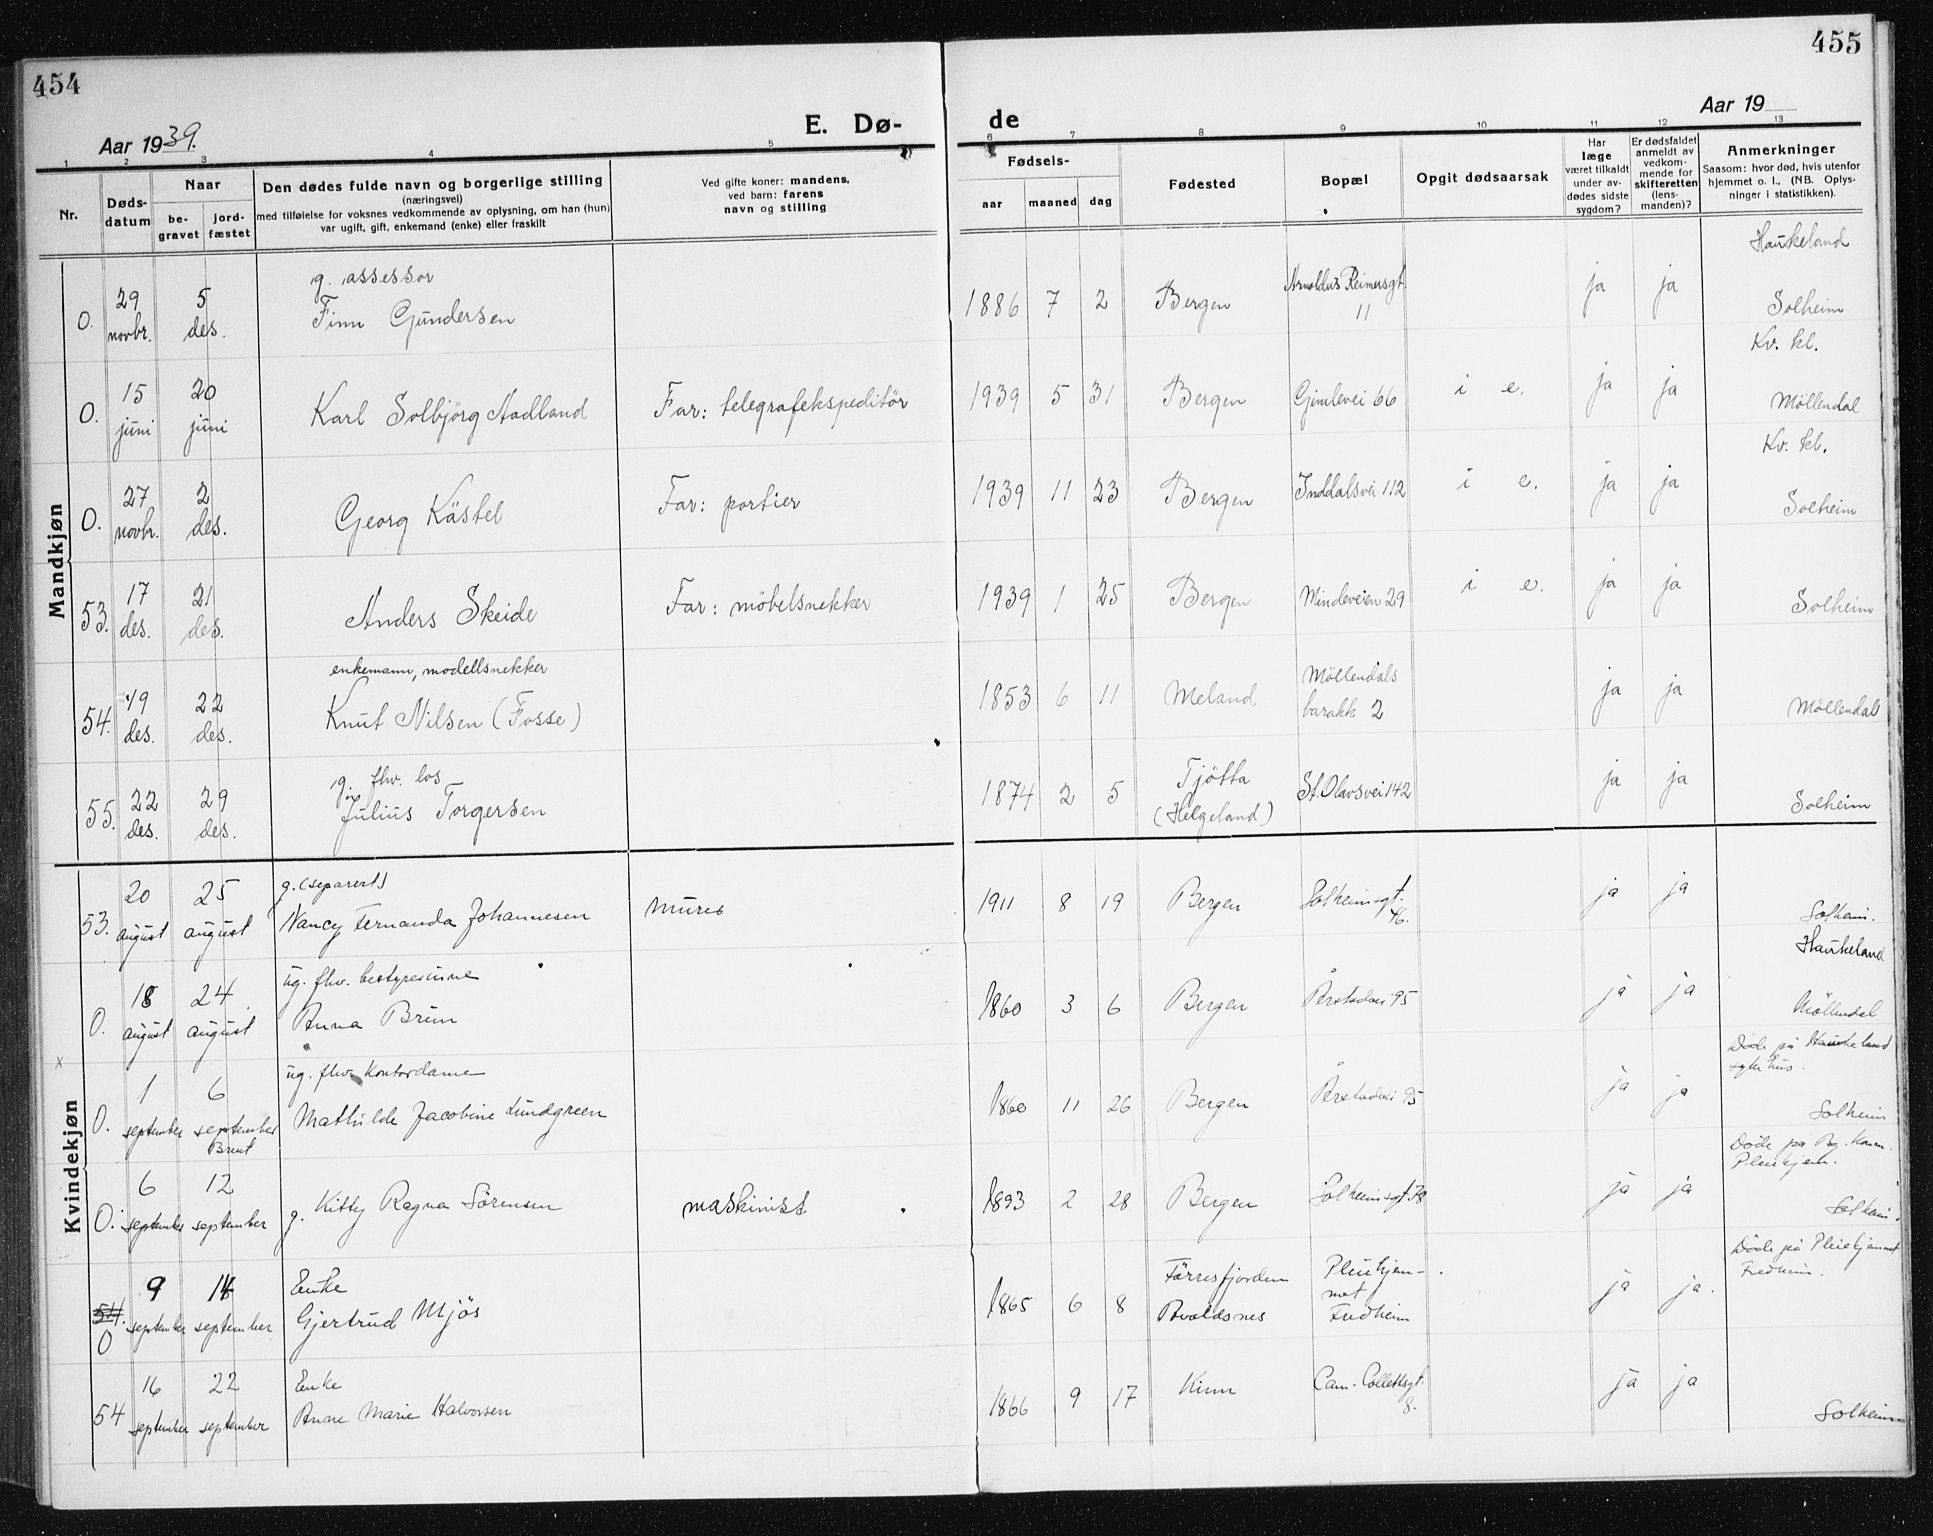 454
455
Aar 1939.
E. Dø-
de
Aar 19
1 2 3 4 5 6 7 8 9 10 11 12 13
Nr.
Døds-
datum
Naar
be-
gravet
jord-
fæstet
Den dødes fulde navn og borgerlige stilling
(næringsvei)
med tilføielse for voksnes vedkommende av oplysning, om han (hun)
var ugift, gift, enkemand (enke) eller fraskilt
Ved gifte koner: mandens,
ved barn: farens
navn og stilling
Fødsels-
aar maaned dag
Fødested
Bopæl
Opgit dødsaarsak
Har
læge
været tilkaldt
under av-
dødes sidste
sygdom?
Er dødsfaldet
anmeldt av
vedkom-
mende for
skifteretten
(lens-
manden)?
Anmerkninger
Saasom: hvor død, hvis utenfor
hjemmet o. l., (NB. Oplys-
ninger i statistikken).
Mandkjøn
Haukeland
g. assessor
O. 29 novbr. 5 des. Finn Gundersen 1886 7 2 Bergen Arnoldus Reimersgt. 11 ja ja Solheim
Kv. kl.
O. 15 juni 20 juni Karl Solbjörg Aadland Far: telegrafekspeditör 1939 5 31 Bergen Gimlevei 66 i e. ja ja Möllendal
Kv. kl.
O. 27 novbr. 2 des. Georg Kästel Far: portier 1939 11 23 Bergen Inddalsvei 112 i e. ja ja Solheim
53. 17 des. 21 des. Anders Skeide Far: möbelsnekker 1939 1 25 Bergen Mindeveien 29 i e. ja ja Solheim
enkemann, modellsnekker
54. 19 des. 22 des. Knut Nilsen (Fosse) 1853 6 11 Meland Möllendals barakk 2 ja ja Möllendal
g. fhv. los
55. 22 des. 29 des. Julius Torgersen 1874 2 5 Tjötta (Helgeland) St. Olavsvei 142 ja ja Solheim
Kvindekjøn
g. (separert)
53. 20 august 25 august Nancy Fernanda Johannesen murer 1911 8 19 Bergen Solheimsgt. 46. ja ja Solheim.
Haukeland
ug. fhv. bestyrerinne
O. 18 august 24 august Anna Brun 1860 3 6 Bergen Årstadvei 95 ja ja Möllendal
x
Döde på Haukeland
sykehus.
ug. fhv. Kontordame
O. 1 september 6 september Brent Mathilde Jacobine Lundgreen 1860 11 26 Bergen Årstadvei 95 ja ja Solheim
Döde på Bg. Komm.
Pleiehjem.
O. 6 september 12 september g. Kitty Ragna Sörensen maskinist 1893 2 28 Bergen Solheimsgt. 78 ja ja Solheim
Döde på Pleiehjemmet
Fredheim.
Enke
54. O 9 september 14 september Gjertrud Mjös 1865 6 8 Förresfjorden Avaldsnes Pleiehjem-met Fredheim ja ja.
Enke
54 16 september 22 september Anne Marie Halvorsen 1866 9 17 Kinn Cam. Collettsgt. 8. ja ja Solheim